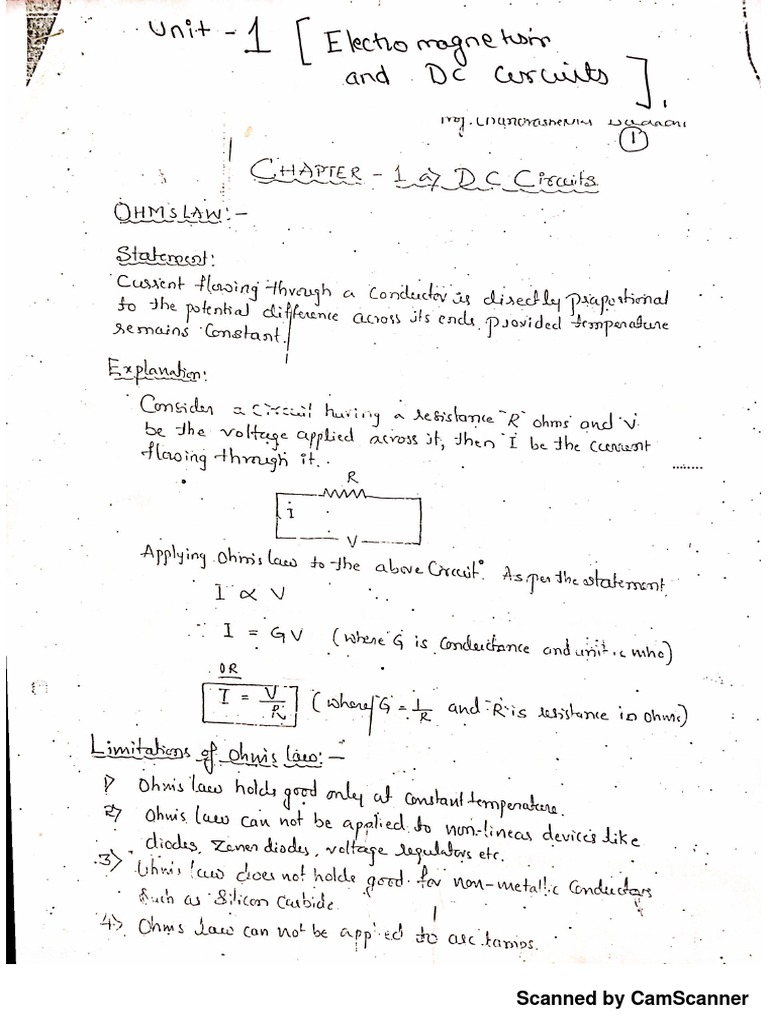 Unit - 1 [ Electromagnetism
and DC circuits ].
Prof.
1
CHAPTER - 1 a) DC Circuits
OHMS LAW:-
Statement:
Current flowing through a conductor is directly propotional
to the potential difference across its ends, provided temperature
remains constant.
Explanation:
Consider a circuit having a resistance 'R' ohms and 'V'
be the voltage applied across it, then 'I' be the current
flowing through it.
R
i
V
Applying Ohm's law to the above Circuit. As per the statement
I ∝ V
∴ I = GV (where G is conductance and unit is mho)
OR
I = V/R (where G = 1/R and 'R' is resistance in ohms)
Limitations of Ohm's law:-
1) Ohm's law holds good only at constant temperature.
2) Ohm's law can not be applied to non-linear devices like
diodes, Zener diodes, voltage regulators etc.
3) Ohm's law does not holds good for non-metallic conductors
such as Silicon Carbide.
4) Ohms law can not be applied to arc lamps.
Scanned by CamScanner